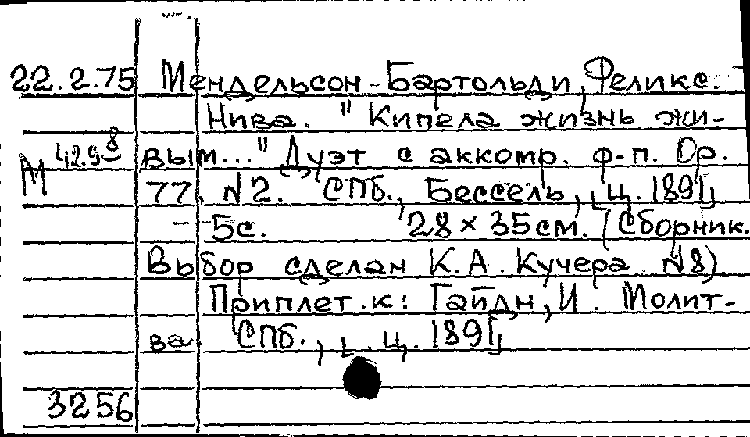 22.2.75 Мендельсон-Бартольди, Феликс.
Нива. "Кипела жизнь жи-
М 42.9 8 вым..." Дуэт с аккомп. ф-п. Ор.
77. N2. СПб., Бессель, [ц. 1891]
5с. 28 × 35 см. (Сборник.
Выбор сделан К.А. Кучера N8)
Приплет. к: Гайдн, И. Молит-
ва СПб., [ц. 189]
3256